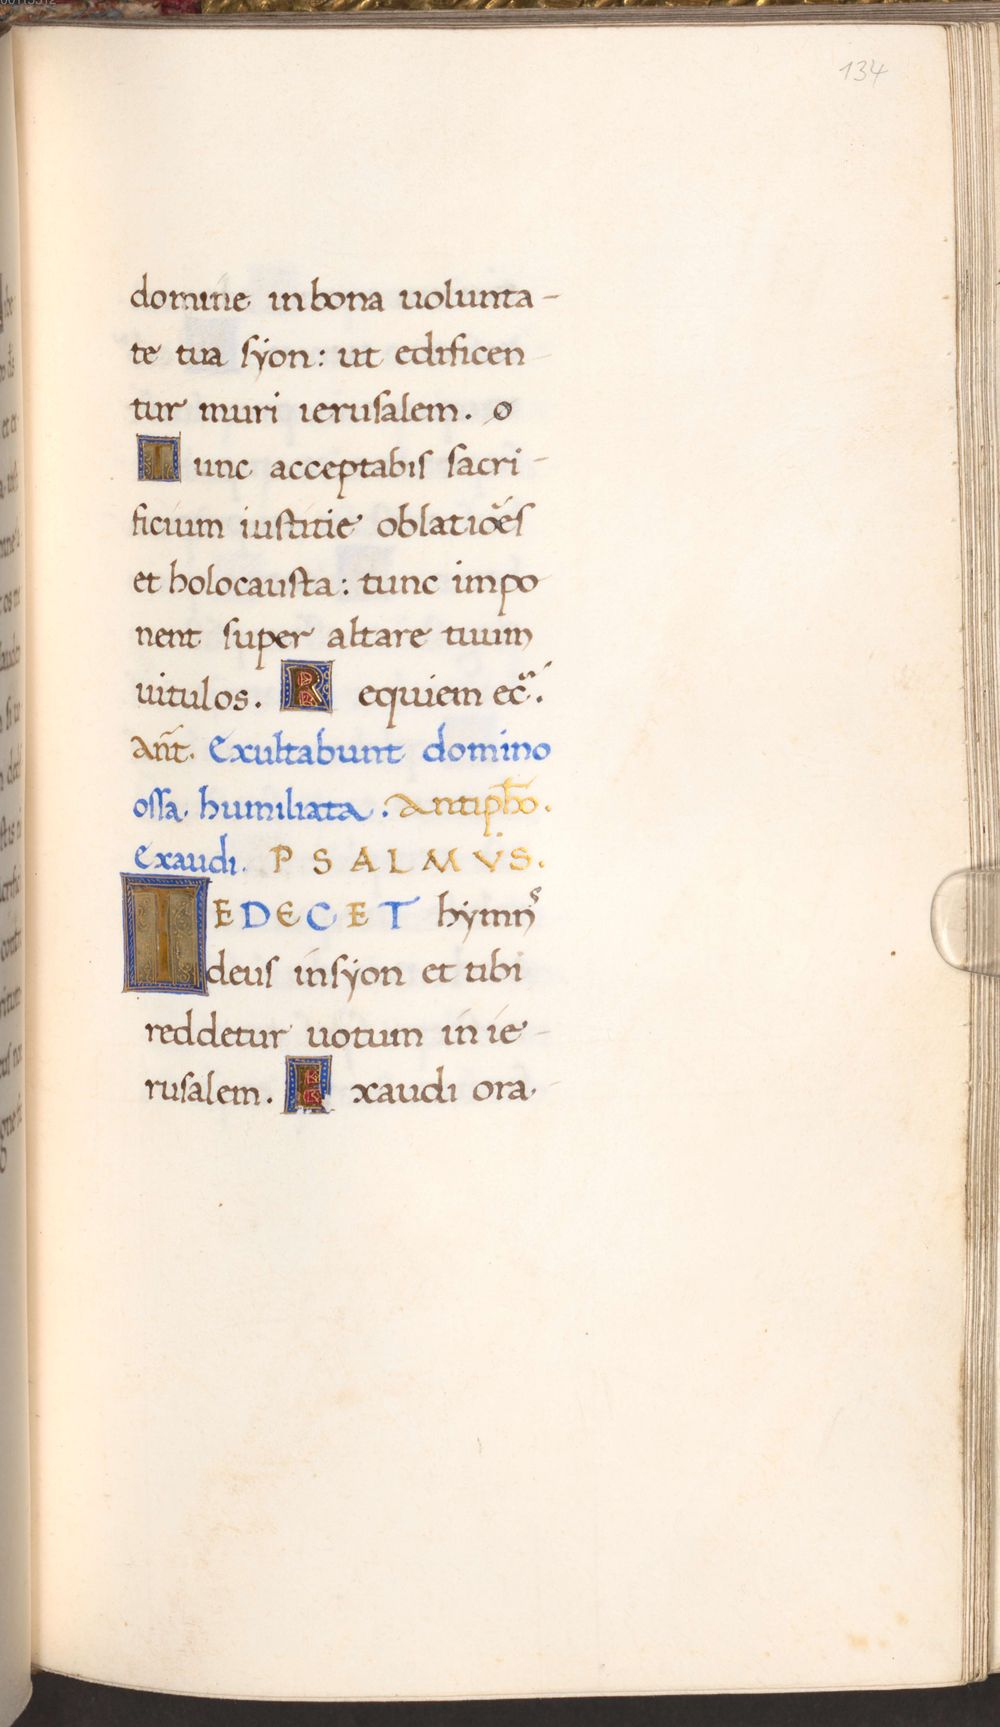 134
domine in bona uolunta-
te tua syon: ut edificen
tur muri ierusalem. o
Tunc acceptabis sacri-
ficium iustitie oblatiões
et holocausta: tunc impo
nent super altare tuum
uitulos. Requiem ec̃.
Añt. Exultabunt domino
ossa. humiliata. Antipho.
Exaudi. PSALMVS.
TEDECET hymnꝰ
deus in syon et tibi
reddetur uotum in ie-
rusalem. Exaudi ora.